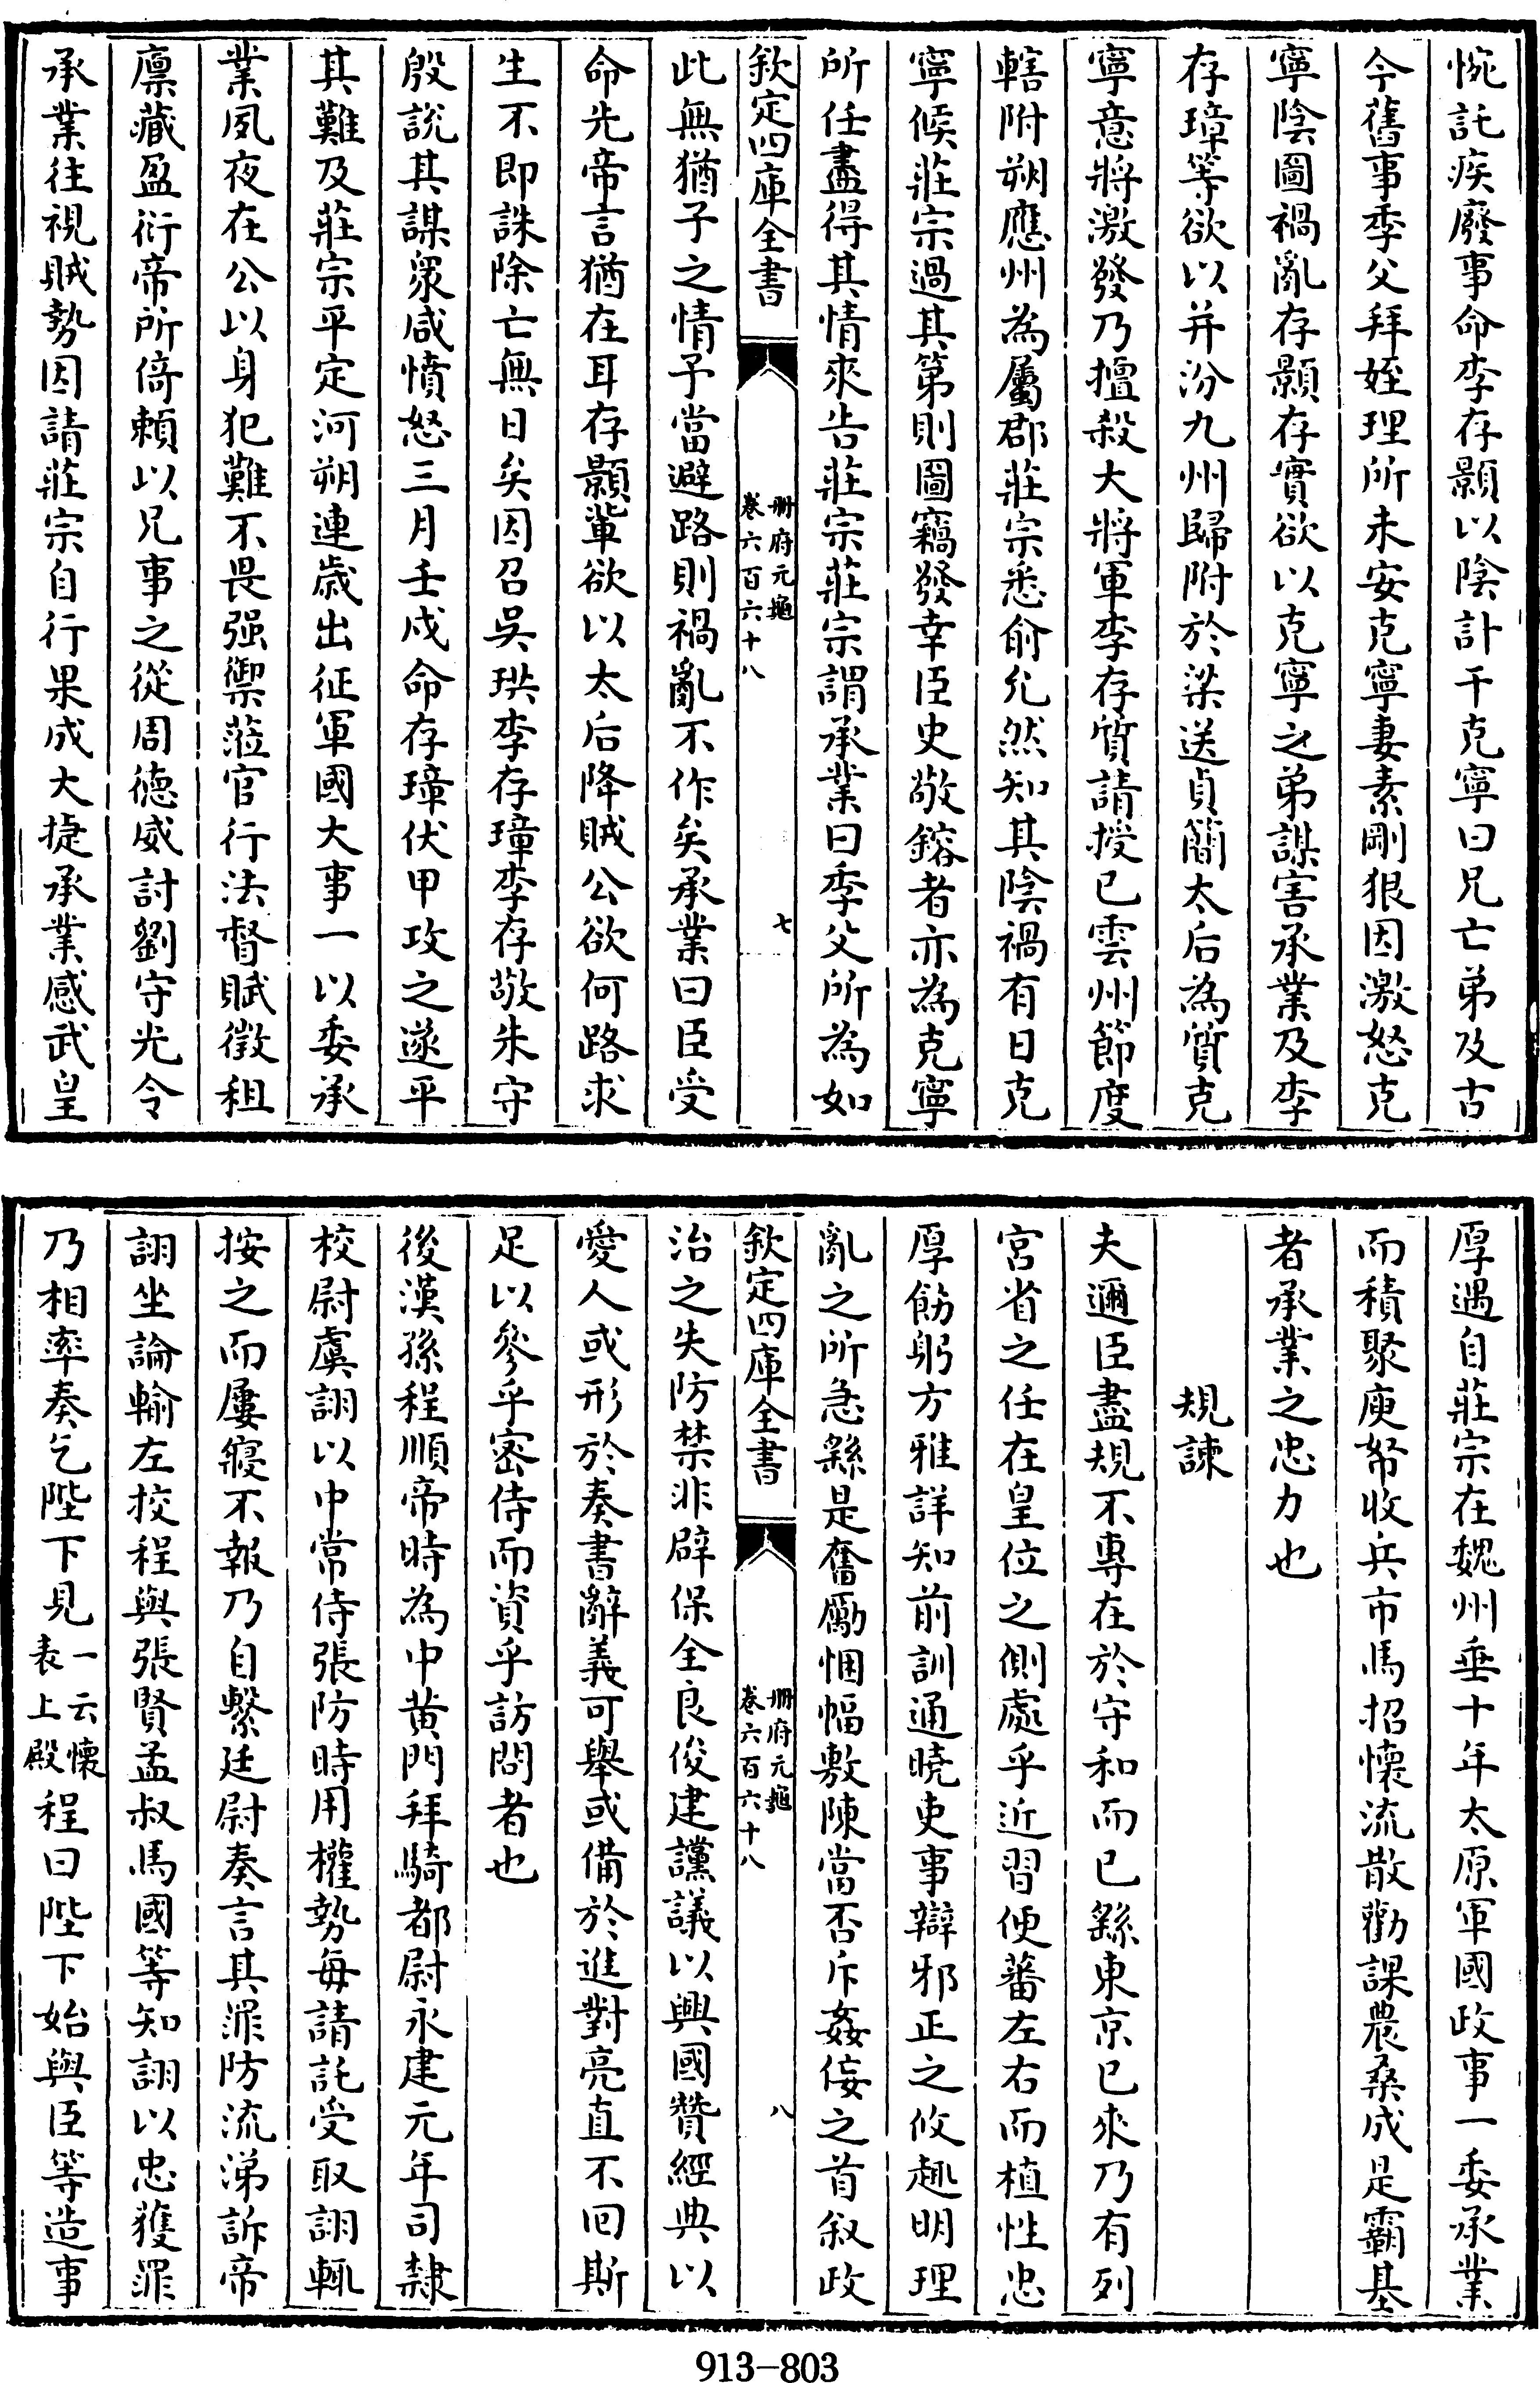 惋託疾廢事命李存顥以陰計干克寧曰兄亡弟及古
今舊事季父拜姪理所未安克寧妻素剛狠因激怒克
寧陰圖禍亂存顥存實欲以克寧之弟謀害承業及李
存璋等欲以并汾九州歸附於梁送貞簡太后為質克
寧意將激發乃擅殺大將軍李存質請授已雲州節度
轄附朔應州為屬郡莊宗悉俞允然知其陰禍有日克
寧候莊宗過其第則圖竊發幸臣史敬鎔者亦為克寧
所任盡得其情來告莊宗莊宗謂承業曰季父所為如
欽定四庫全書
冊府元龜
卷六百六十八
七
此無猶子之情予當避路則禍亂不作矣承業曰臣受
命先帝言猶在耳存顥輩欲以太后降賊公欲何路求
生不即誅除亡無日矣因召吳珙李存璋李存敬朱守
殷說其謀眾咸憤怒三月壬戌命存璋伏甲攻之遂平
其難及莊宗平定河朔連歲出征軍國大事一以委承
業夙夜在公以身犯難不畏强禦蒞官行法督賦徵租
廪藏盈衍帝所倚賴以兄事之從周德威討劉守光令
承業往視賊勢因請莊宗自行果成大捷承業感武皇
厚遇自莊宗在魏州垂十年太原軍國政事一委承業
而積聚庾帑收兵市馬招懷流散勸課農桑成是霸基
者承業之忠力也
規諫
夫邇臣盡規不專在於守和而已繇東京已來乃有列
宮省之任在皇位之側處乎近習便蕃左右而植性忠
厚飭躬方雅詳知前訓通曉吏事辯邪正之攸趣明理
亂之所急繇是奮勵悃幅敷陳當否斥姦佞之首叙政
欽定四庫全書
冊府元龜
卷六百六十八
八
治之失防禁非辟保全良俊建讜議以興國贊經典以
愛人或形於奏書辭義可舉或備於進對亮直不回斯
足以參乎密侍而資乎訪問者也
後漢孫程順帝時為中黄門拜騎都尉永建元年司隸
校尉虞詡以中常侍張防時用權勢每請託受取詡輒
按之而屢寢不報乃自繫廷尉奏言其罪防流涕訴帝
詡坐論輸左校程與張賢孟叔馬國等知詡以忠獲罪
乃相率奏乞陛下見一云懷表上殿程曰陛下始與臣等造事
913-803